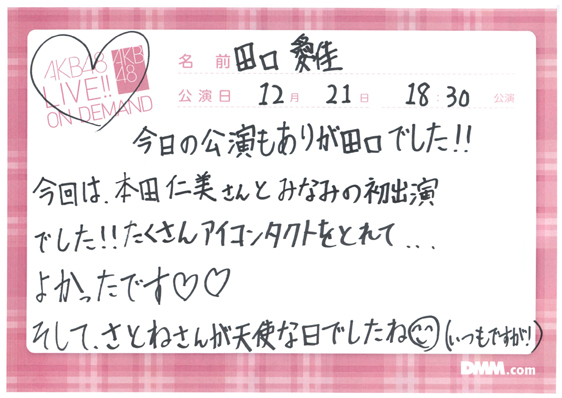 AKB48
LIVE!!
ON DEMAND
AKB
48
名前 田口 愛佳
公演日 12月 21日 18:30 公演
今日の公演もありが田口でした!!
今回は、本田仁美さんとみなみの初出演
でした!!たくさんアイコンタクトをとれて...
よかったです♡♡
そして、さとねさんが天使な日でしたね(いつもですが!)
DMM.com